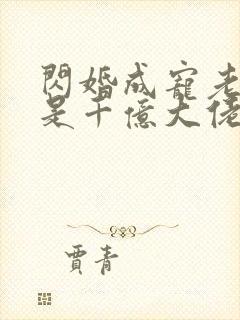 閃婚成寵老
是千億大佬
賈青